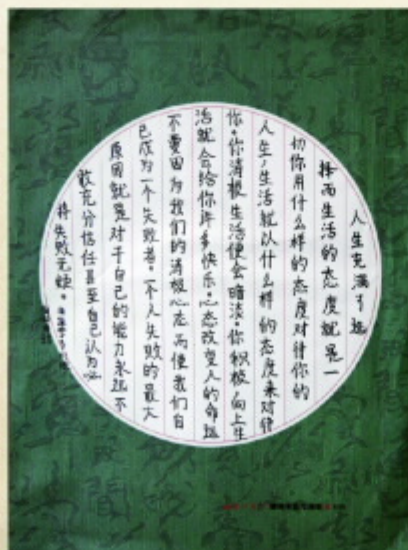 人生充满了选
择而生活的态度就是一
切你用什么样的态度对待你的
人生，生活就以什么样的态度来对待
你。你消极生活便会暗淡。你积极向上生
活就会给你许多快乐。心态改变人的命运
不要因为我们的消极心态而使我们自
己成为一个失败者。一个人失败的最大
原因就是对于自己的能力永远不
敢充分信任甚至自己认为必
将失败无疑。